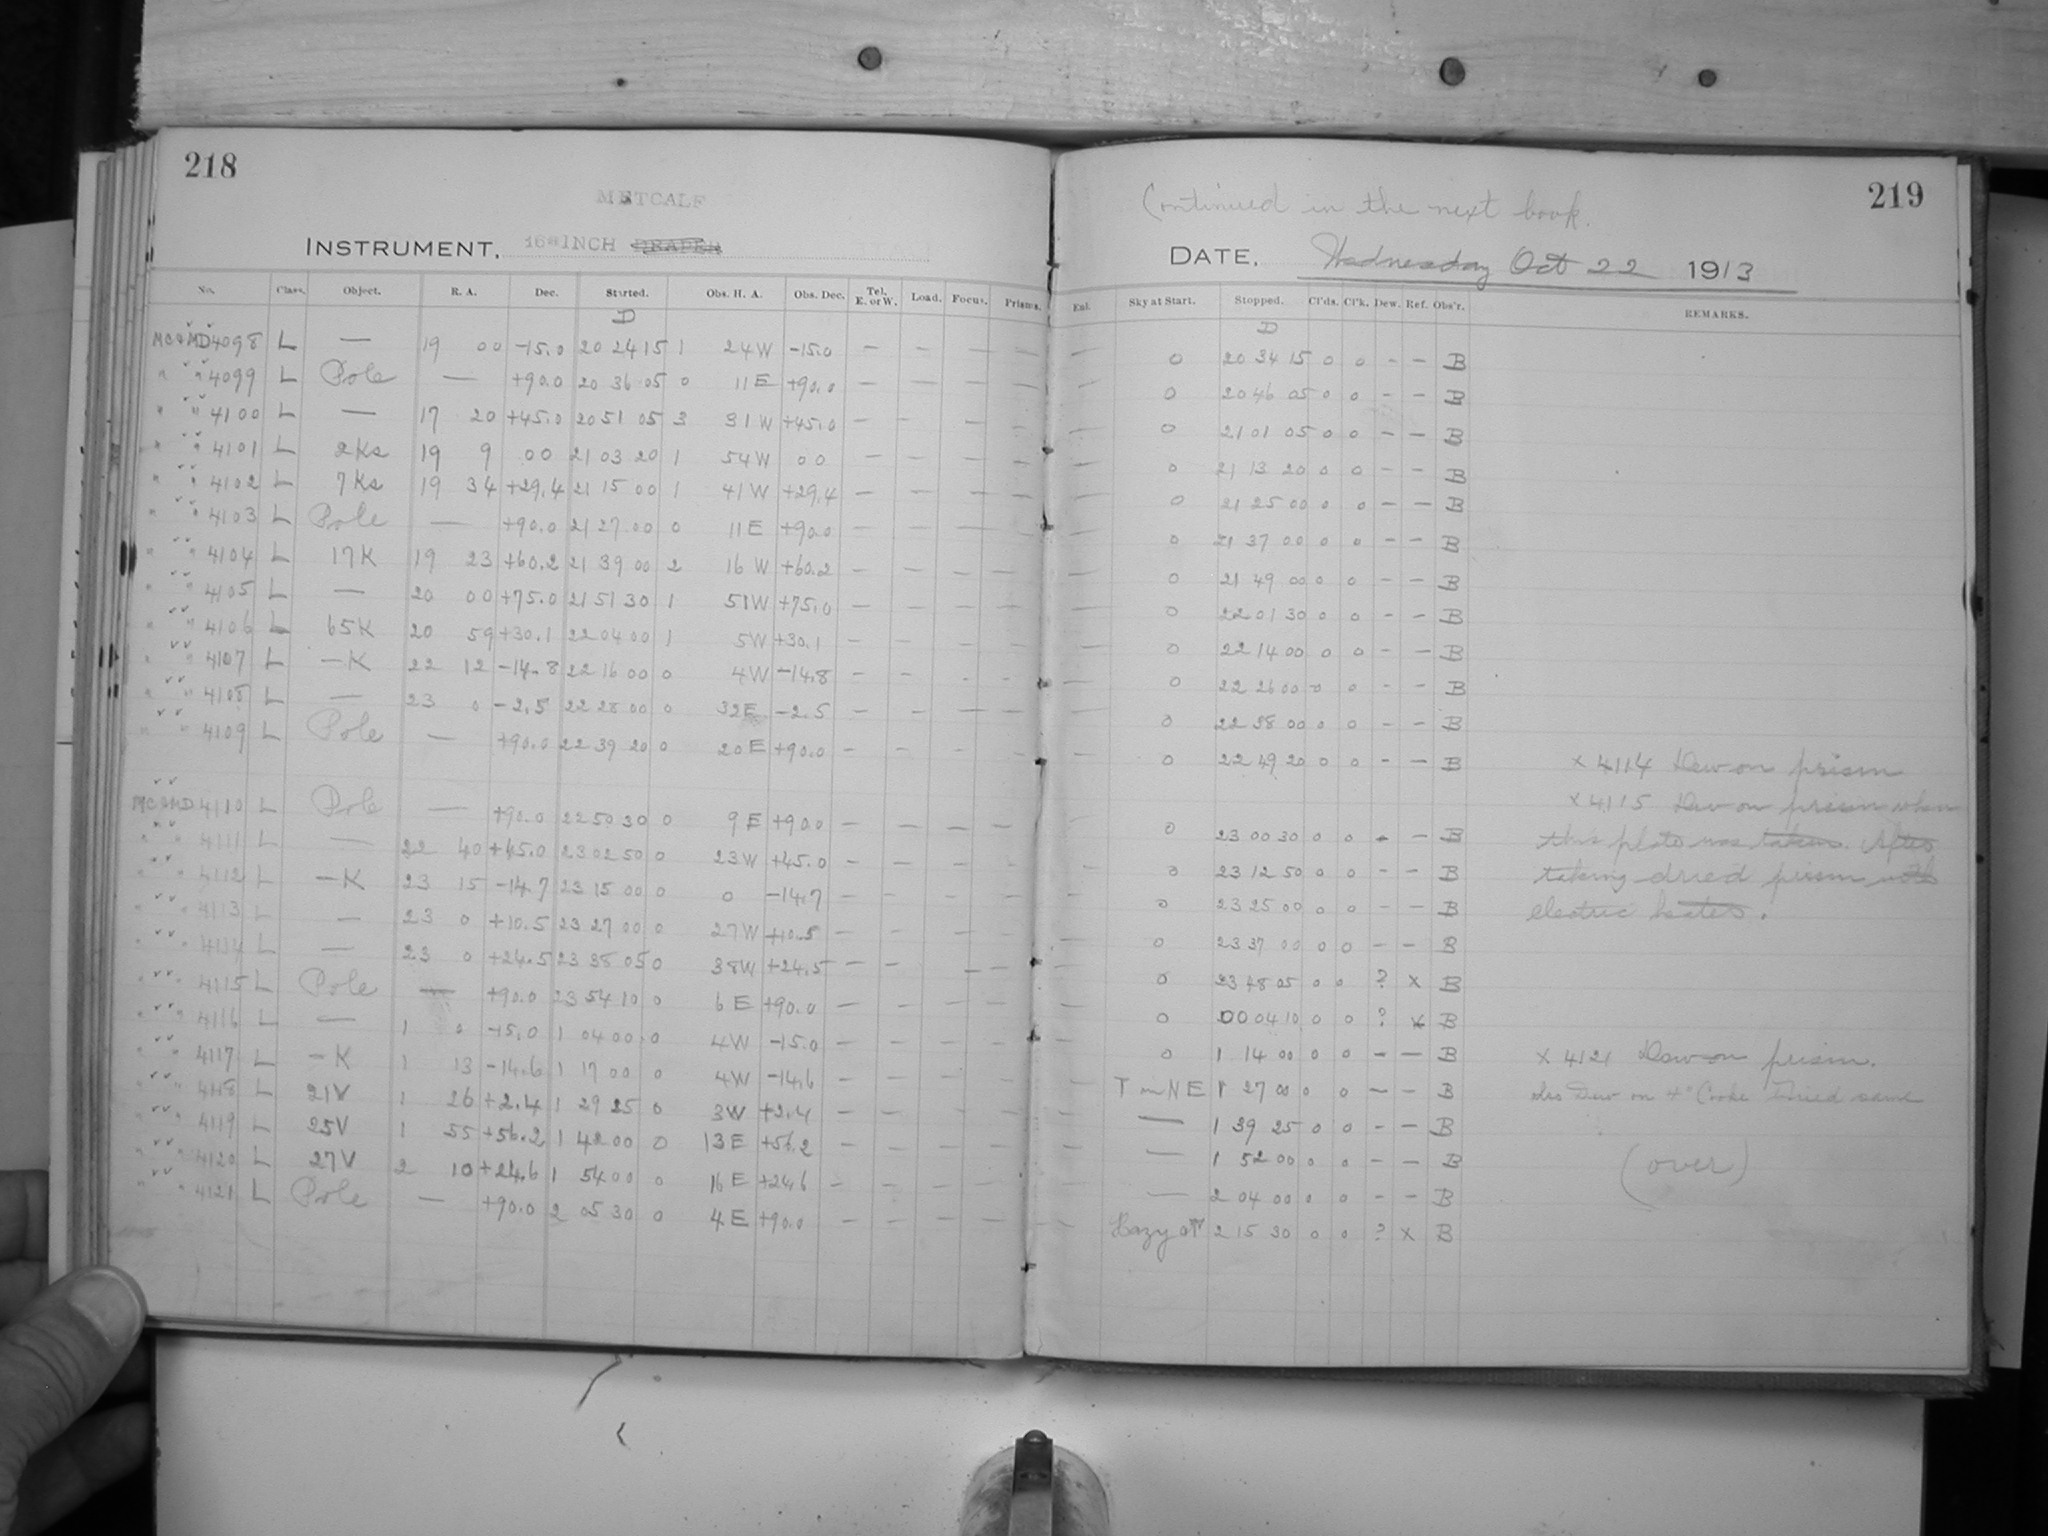 218
METCALF
INSTRUMENT. 16"INCH DRAPER
No. Class. Object. R. A. Dec. Started. Obs. H. A. Obs. Dec. Tel. E. or W. Load. Focus. Prisms.
D
MC & MD 4098 L — 19 00 -15.0 20 24 15 1 24 W -15.0 — — — —
" " 4099 L Pole — +90.0 20 36 05 0 11 E +90.0 — — — —
" " 4100 L — 17 20 +45.0 20 51 05 3 31 W +45.0 — — — —
" " 4101 L 2Ks 19 9 00 21 03 20 1 54 W 00 — — — —
" " 4102 L 7Ks 19 34 +29.4 21 15 00 1 41 W +29.4 — — — —
" " 4103 L Pole — +90.0 21 27 00 0 11 E +90.0 — — — —
" " 4104 L 17K 19 23 +60.2 21 39 00 2 16 W +60.2 — — — —
" " 4105 L — 20 00 +75.0 21 51 30 1 51 W +75.0 — — — —
" " 4106 L 65K 20 59 +30.1 22 04 00 1 5 W +30.1 — — — —
" " 4107 L —K 22 12 -14.8 22 16 00 0 4 W -14.8 — — — —
" " 4108 L — 23 0 -2.5 22 28 00 0 32 E -2.5 — — — —
" " 4109 L Pole — +90.0 22 39 20 0 20 E +90.0 — — — —
MC & MD 4110 L Pole — +90.0 22 50 30 0 9 E +90.0 — — — —
" " 4111 L — 22 40 +45.0 23 02 50 0 23 W +45.0 — — — —
" " 4112 L —K 23 15 -14.7 23 15 00 0 0 -14.7 — — — —
" " 4113 L — 23 0 +10.5 23 27 00 0 27 W +10.5 — — — —
" " 4114 L — 23 0 +24.5 23 38 05 0 38 W +24.5 — — — —
" " 4115 L Pole — +90.0 23 54 10 0 6 E +90.0 — — — —
" " 4116 L — 1 0 -15.0 1 04 00 0 4 W -15.0 — — — —
" " 4117 L —K 1 13 -14.6 1 17 00 0 4 W -14.6 — — — —
" " 4118 L 21V 1 26 +2.4 1 29 25 0 3 W +2.4 — — — —
" " 4119 L 25V 1 55 +56.2 1 42 00 0 13 E +56.2 — — — —
" " 4120 L 27V 2 10 +24.6 1 54 00 0 16 E +24.6 — — — —
" " 4121 L Pole — +90.0 2 05 30 0 4 E +90.0 — — — —
219
Continued in the next book.
DATE. Wednesday Oct 22 1913
Enl. Sky at Start. Stopped. Cl'ds. Cl'k. Dew. Ref. Obs'r. REMARKS.
D
— 0 20 34 15 0 0 — — B
— 0 20 46 05 0 0 — — B
— 0 21 01 05 0 0 — — B
— 0 21 13 20 0 0 — — B
— 0 21 25 00 0 0 — — B
— 0 21 37 00 0 0 — — B
— 0 21 49 00 0 0 — — B
— 0 22 01 30 0 0 — — B
— 0 22 14 00 0 0 — — B
— 0 22 26 00 0 0 — — B
— 0 22 38 00 0 0 — — B
— 0 22 49 20 0 0 — — B x 4114 Dew on prism
x 4115 Dew on prism when
— 0 23 00 30 0 0 — — B this plate was taken. After
— 0 23 12 50 0 0 — — B taking dried prism with
— 0 23 25 00 0 0 — — B electric heater.
— 0 23 37 00 0 0 — — B
— 0 23 48 05 0 0 ? x B
— 0 00 04 10 0 0 ? x B
— 0 1 14 00 0 0 — — B x 4121 Dew on prism.
— T in NE 1 27 00 0 0 — — B also Dew on 4" Cooke Dried same
— — 1 39 25 0 0 — — B
— — 1 52 00 0 0 — — B (over)
— — 2 04 00 0 0 — — B
— Hazy 2 15 30 0 0 ? x B